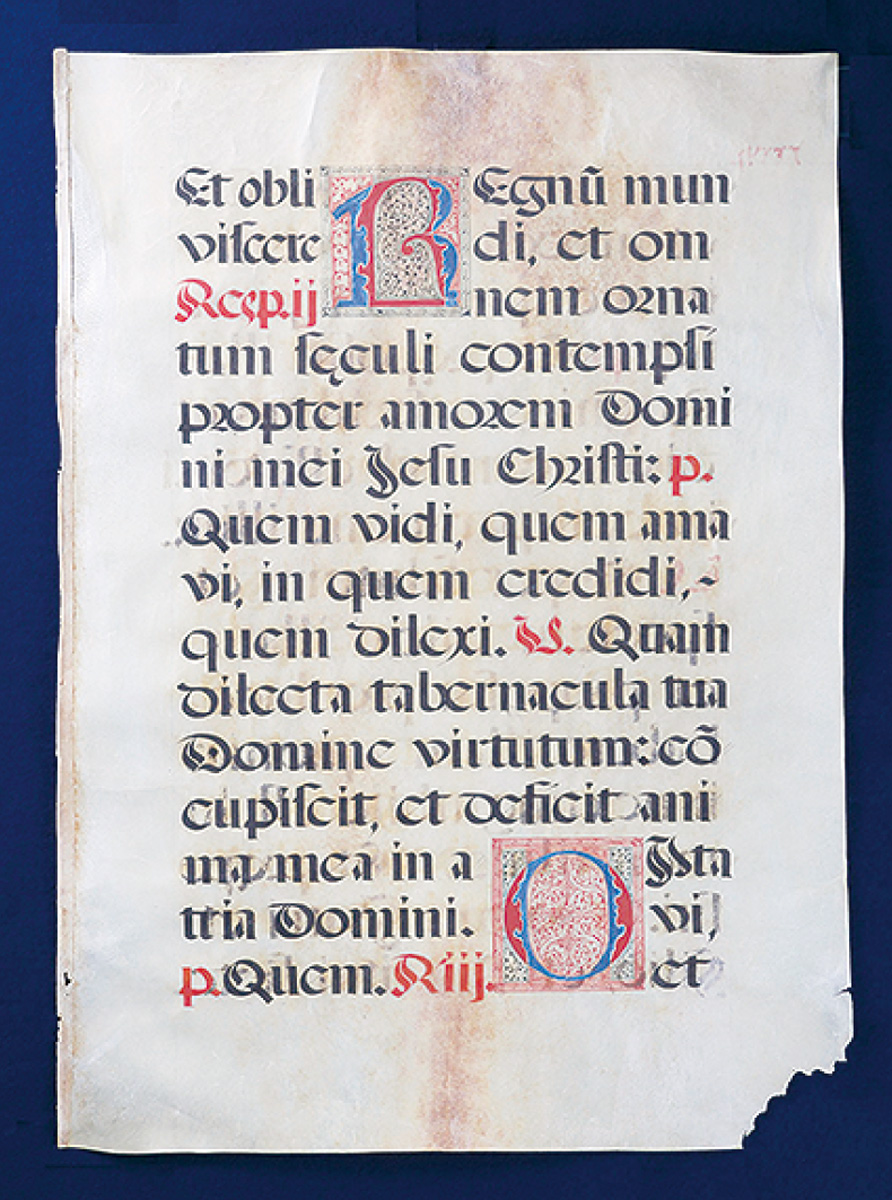 Et obli REgnũ mun
viſcere di, et om
Resp.ij nem orna
tum ſęculi contempſi
propter amorem Domi
ni mei Jeſu Chriſti: p.
Quem vidi, quem ama
vi, in quem credidi,~
quem dilexi. ℣. Quam
dilecta tabernacula tua
Domine virtutum: cõ
cupiſcit, et deficit ani
ma mea in a OPta
tria Domini. vi,
p. Quem. Riij. et